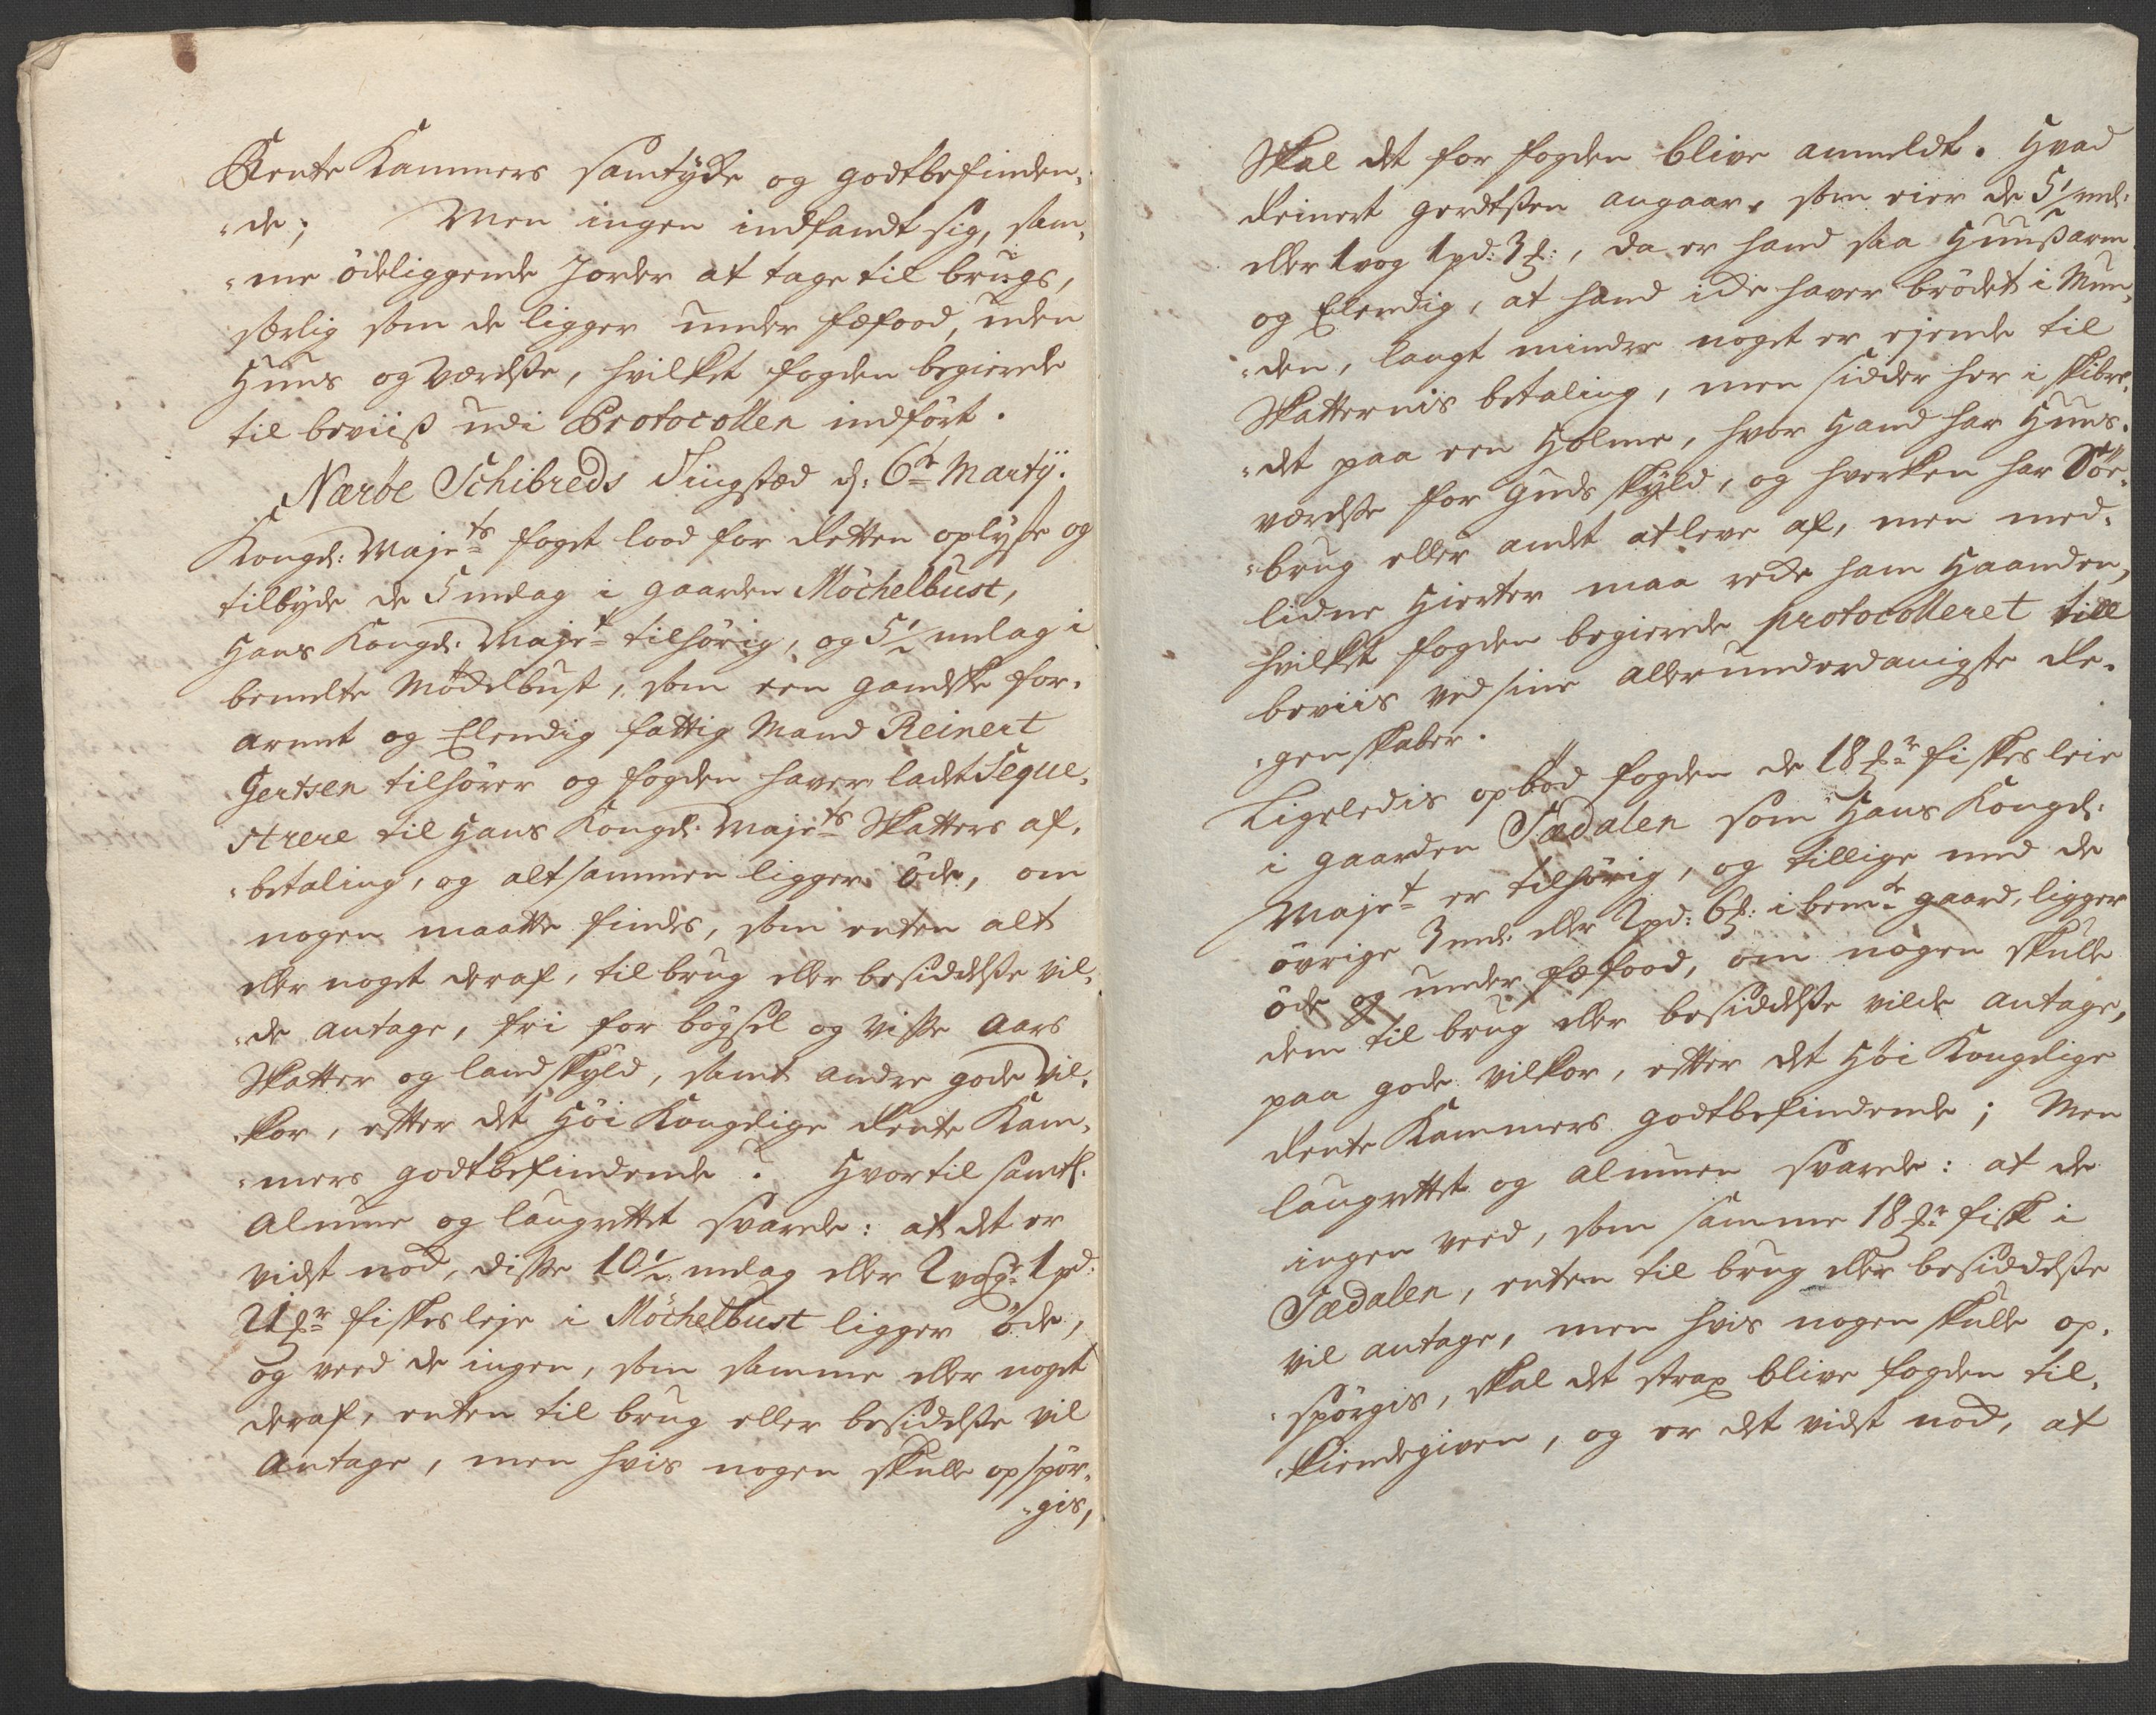 Rente Kammers samtÿcke og godtbefinden¸
¸de; Men ingen indfandt sig, sam¸
¸me ödeliggende Jorder at tage til brugs,
særlig som de ligger under fæfood, uden
Huus og Værelse, hvilket fogden begierede
til beviiß udi Protocollen indfört.
Naröe Schibreds Tingstæd d: 6te Martÿ.
Kongl: Majets foget lood for Retten oplyse og
tilbyde de 5 mælag i gaarden Möchelbust,
Hans Kongl: Majet tilhörig, og 5½ melag i
bemelte Möckelbust, som een gandske for¸
armt og Elendig fattig Mand Reinert
Gertsen tilhörer og fogden haver ladt Seque¸
strere til Hans Kongl: Majets Skatters af¸
¸betaling, og altsammen ligger öde, om
nogen maatte findes, som enten alt
eller noget deraf, til brug eller besiddelse vil¸
¸de antage, fri for böxsel og visse Aars
Skatter og landskyld, samt andre gode Vil¸
¸kor, efter det Höi Kongelige Rente Kam¸
¸mers godtbefindende? Hvortil samtl:
Almue og laugrettet svarede: at det er
vidst nock, disse 10½ melag eller 2 vog 1 pd:
21 mr fiskesleje i Möchelbust ligger öde,
og veed de ingen, som samme eller noget
deraf, enten til brug eller besiddelse vil
Antage, men hvis nogen skulle opspör¸
¸gis,
Skal det for fogden blive anmeldt. Hvad
Reinert Gerdtsen angaar, som eier de 5½ ml:
eller 1 vog 1 pd: 3 m:, da er hand saa Huusarm
og Elendig, at hand icke haver brödet i Mun¸
¸den, langt mindre noget er ejende til
Skatternis betaling, men sidder her i skibre¸
¸det paa een Holme, hvor Hand har Huus¸
værelse for Guds skyld, og hverken har Söe¸
¸brug eller andet at leve af, men med¸
lidne Hierter maa recke ham Haanden,
hvilket fogden begierede protocolleret till
beviis ved sine allerunderdanigste Re¸
¸genskaber.
Ligeledis opböd fogden de 18 mr fiskesleie
i gaarden Sædalen som Hans Kongl:
Majet er tilhörig, og tillige med de
övrige 3 ml: eller 2 pd: 6 m: i bemte gaard, ligger
öde og under fæfood, om nogen skulle
dem til brug eller besiddelse vilde antage,
paa gode vilkor, efter det Höi Kongelige
Rente Kammers godtbefindende; Men
laugrettet og almuen svarede: at de
ingen veed, som samme 18 mr fisk i
Sædalen, enten til brug eller besiddelse
vil antage, men hvis nogen skulle op¸
¸spörgis, skal det strax blive fogden til¸
¸kiendegiven, og er det vidst nock, at